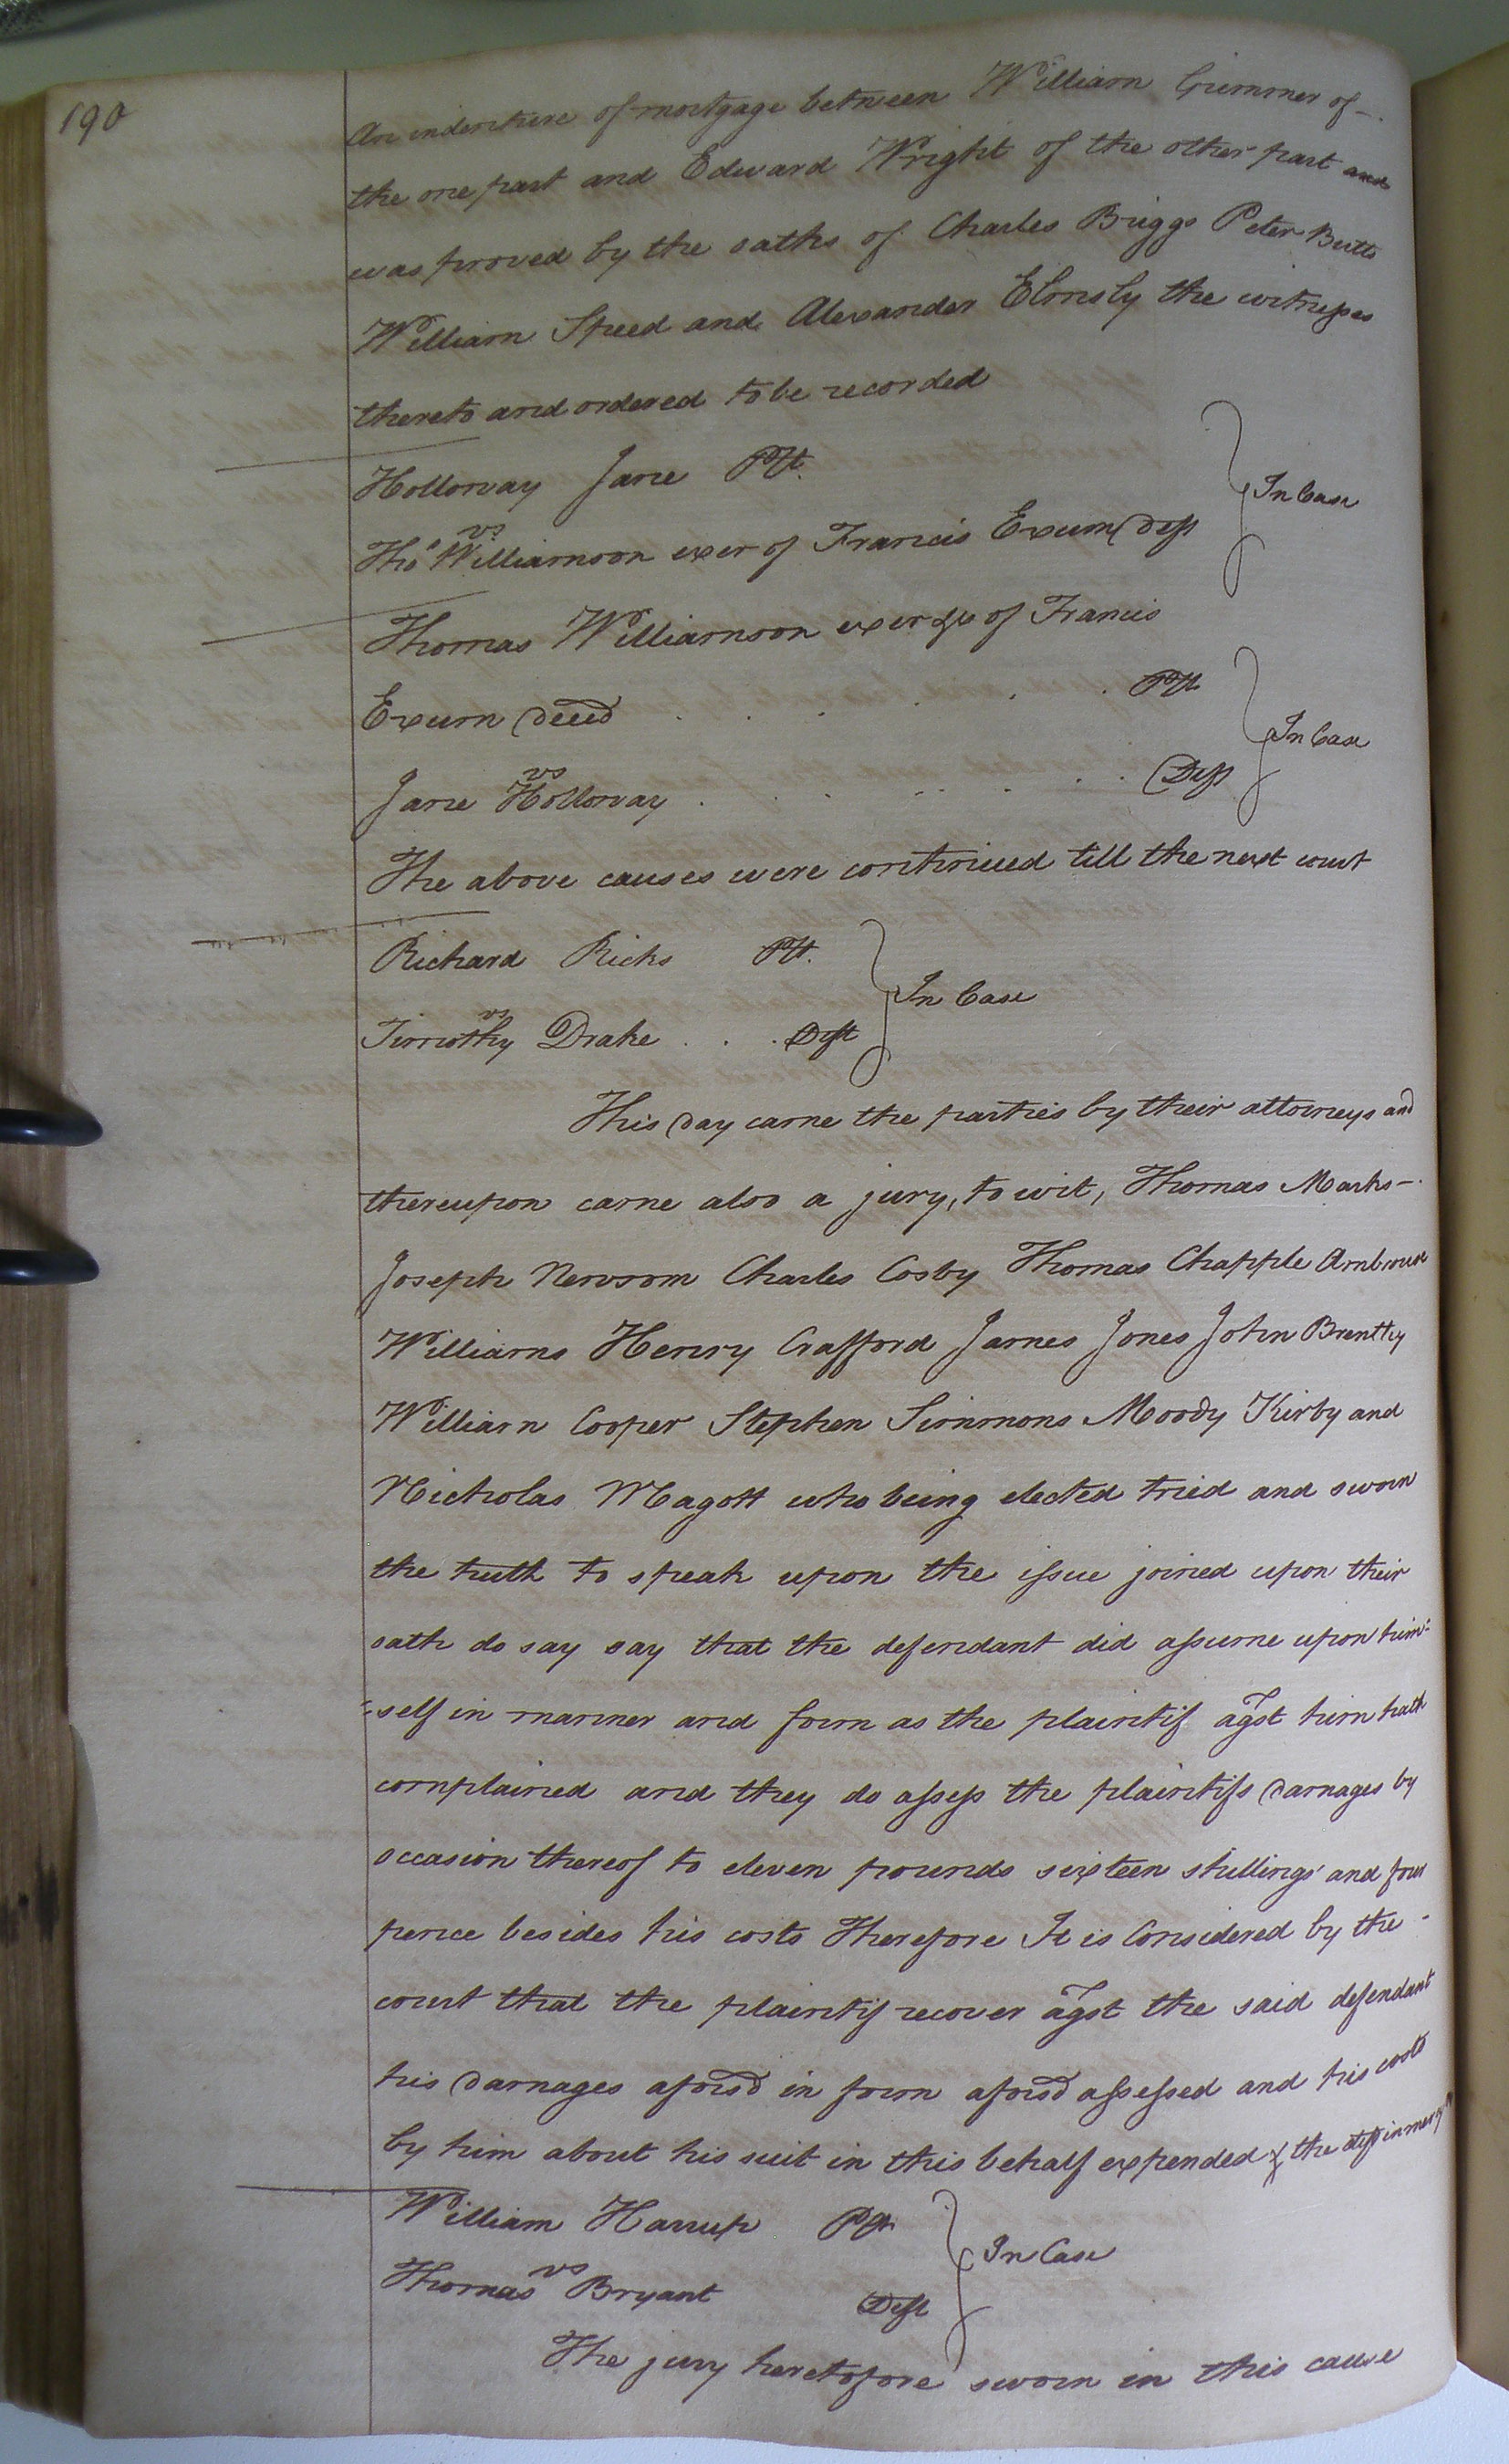 190
An indenture of mortgage between William Grimmer of -
the one part and Edward Wright of the other part and
was proved by the oaths of Charles Briggs Peter Butts
William Speed and Alexander Elmsly the witnesses
thereto and ordered to be recorded
Holloway Jane Plt. } In Case
vs
Thos Williamson exer of Francis Exum Deft
Thomas Williamson exer &c of Francis
Exum decd . . . . . Plt } In Case
vs
Jane Holloway . . . . . . Deft
The above causes were continued till the next court
Richard Ricks Plt. } In Case
vs
Timothy Drake . . . Deft
This day came the parties by their attorneys and
thereupon came also a jury, to wit, Thomas Marks -
Joseph Newsom Charles Cosby Thomas Chapple Ambrouse
Williams Henry Crafford James Jones John Brantley
William Cooper Stephen Simmons Moody Kirby and
Nicholas Magott who being elected tried and sworn
the truth to speak upon the issue joined upon their
oath do say say that the defendant did assume upon him-
-self in manner and form as the plaintif agst him hath
complained and they do assess the plaintifs damages by
occasion thereof to eleven pounds sixteen shillings and four
pence besides his costs Therefore It is Considered by the -
court that the plaintif recover agst the said defendant
his damages aforsd in form aforsd assessed and his costs
by him about his suit in this behalf expended & the deft in mercy &c
William Harrup Plt } In Case
vs
Thomas Bryant Deft
The jury heretofore sworn in this cause